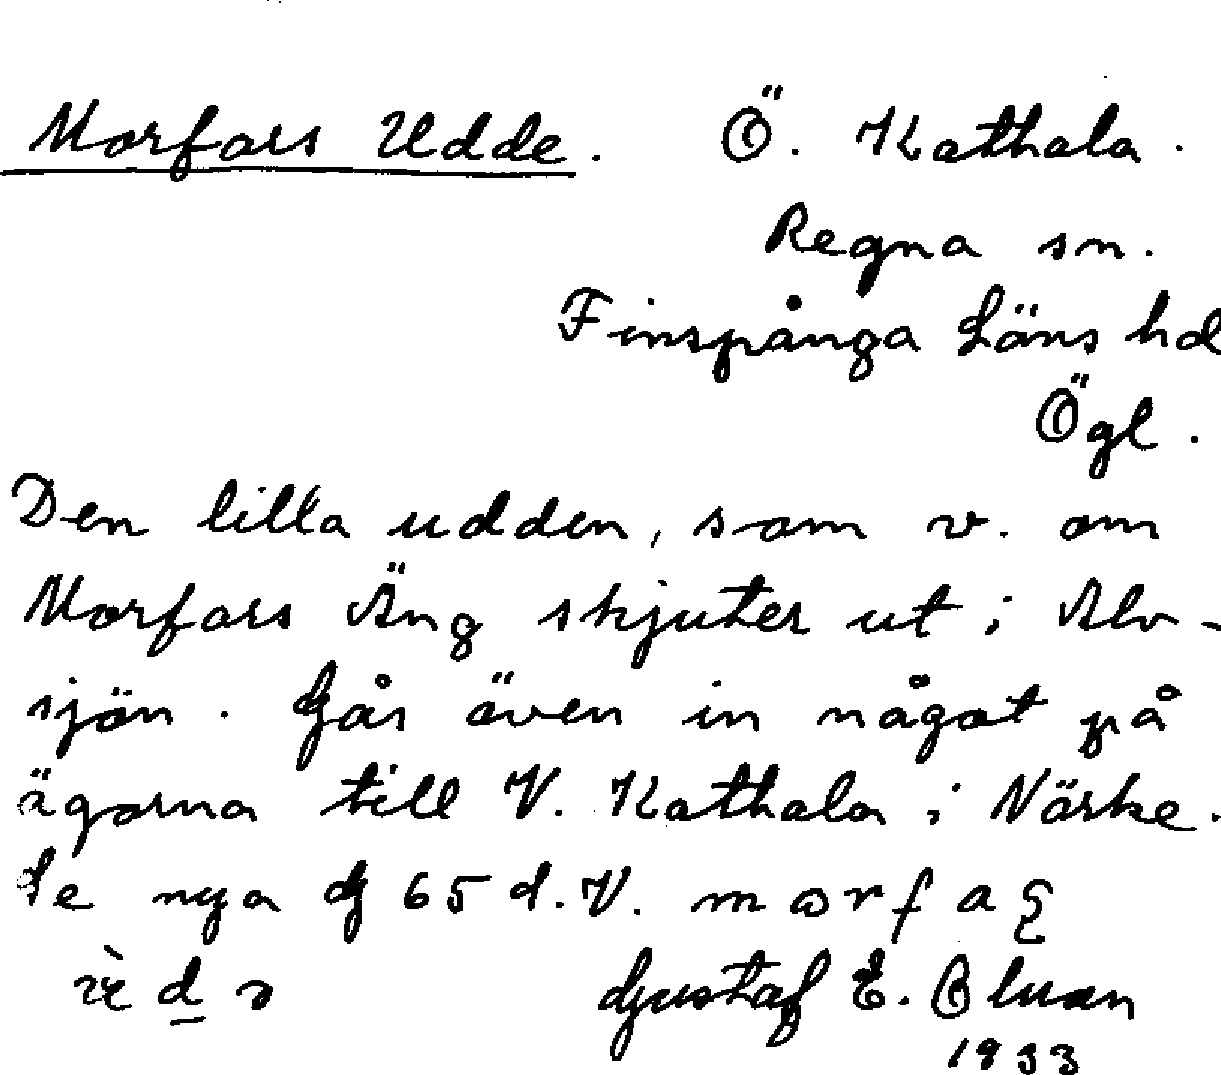 Morfars Udde. Ö. Kathala.
Regna sn.
Finspånga Läns hd
Ögl.
Den lilla udden, som v. om
Morfars Äng skjuter ut i Alv-
sjön. Går även in något på
ägorna till V. Kathala i Närke.
Se nya G 65 d.V. morfaʂ
d ɔ Gustaf E. Bluan
1933